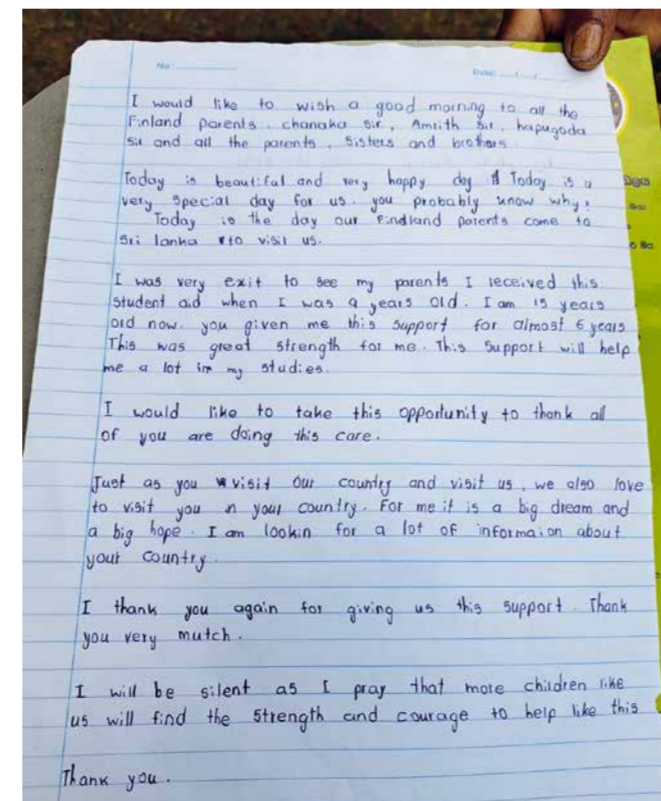 No:
Date: / /
I would like to wish a good morning to all the
Finland parents. chanaka sir, Amrith sir. hapugoda
sir and all the parents. Sisters and brothers
Today is beautiful and very happy day Today is a
very special day for us. you probably know why,
Today is the day our Findland parents come to
Sri lanka to visit us.
I was very exit to see my parents I received this
student aid when I was 9 years old. I am 15 years
old now. you given me this support for almost 6 years
This was great strength for me. This support will help
me a lot in my studies.
I would like to take this opportunity to thank all
of you are doing this care.
Just as you visit our country and visit us, we also love
to visit you in your country. For me it is a big dream and
a big hope. I am lookin for a lot of informaion about
your country.
I thank you again for giving us this support. Thank
you very mutch.
I will be silent as I pray that more children like
us will find the strength and courage to help like this
Thank you.